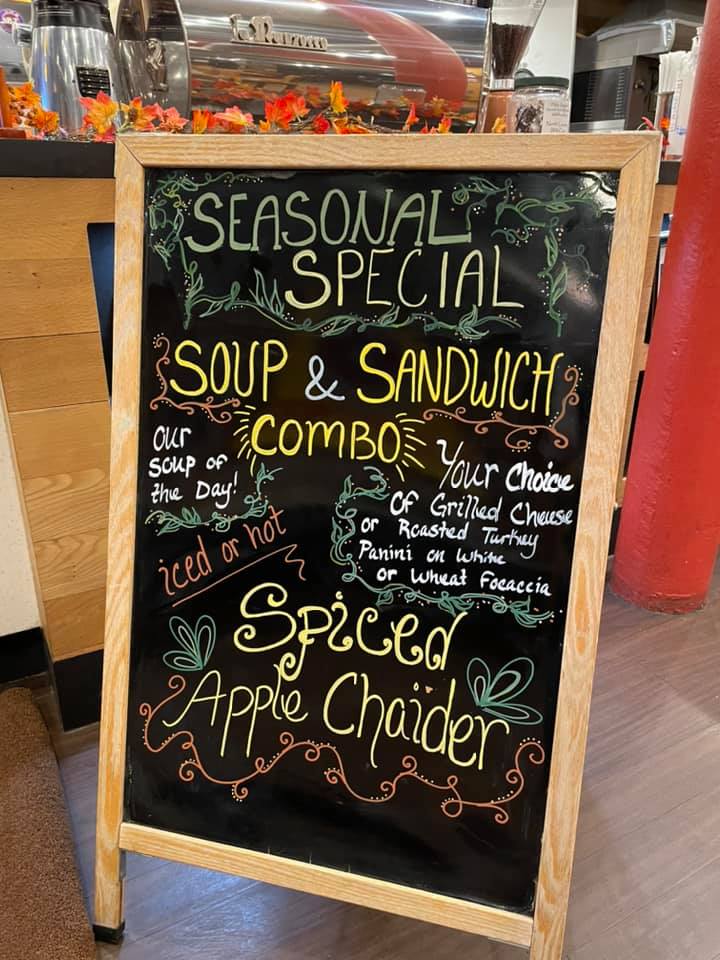 la Marzocco
SEASONAL
SPECIAL
SOUP & SANDWICH
COMBO
Our
soup of
the Day!
Your Choice
Of Grilled Cheese
or Roasted Turkey
Panini on White
or Wheat Focaccia
iced or hot
Spiced
Apple Chaider